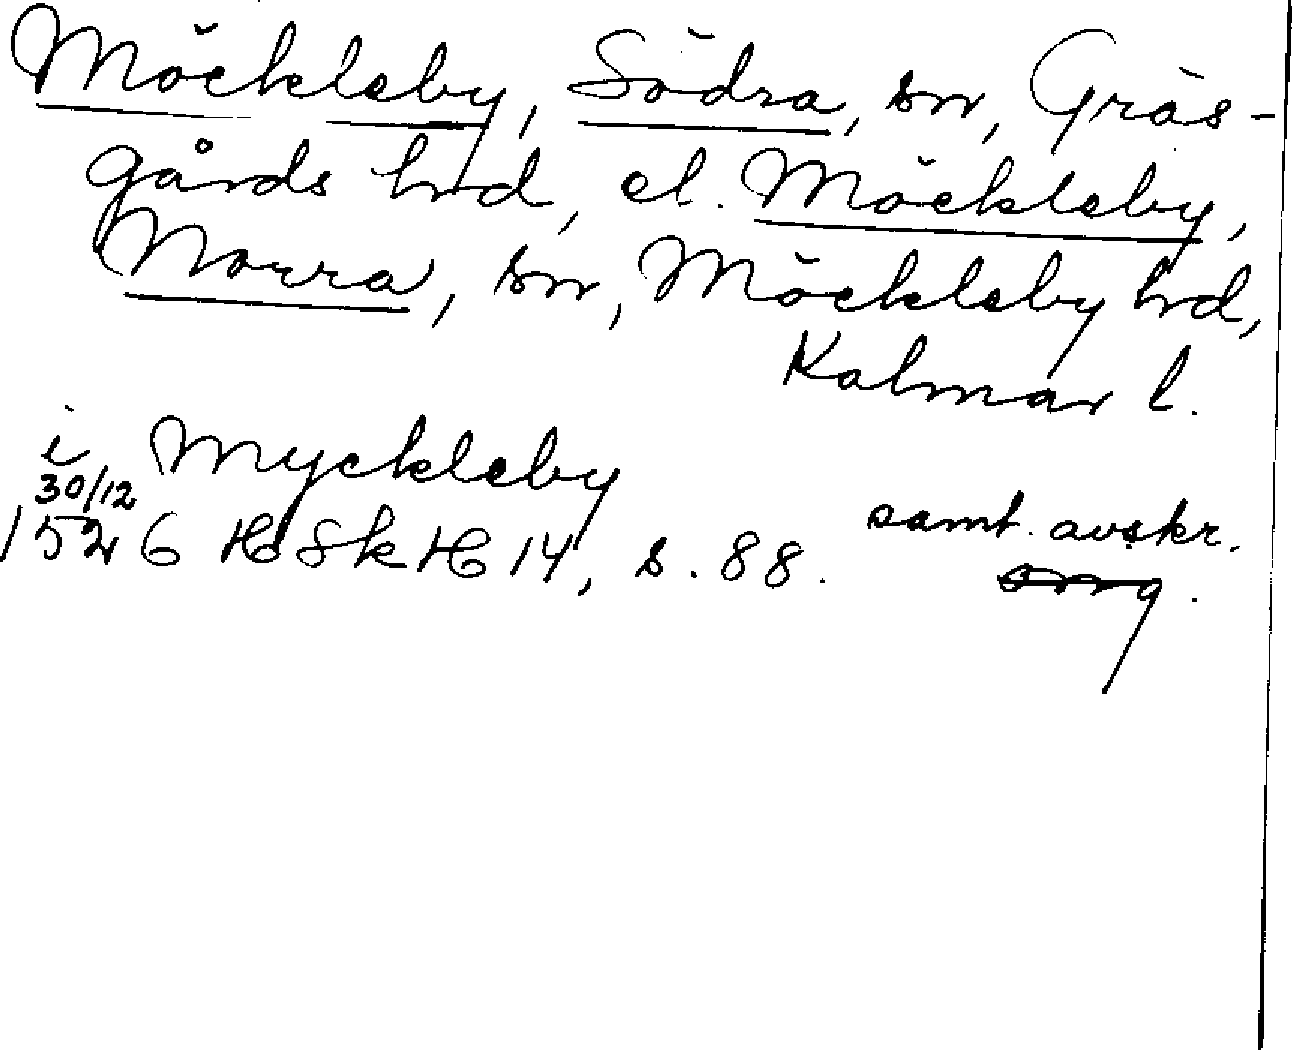 Möckleby, Södra, sn, Gräs-
gårds hrd, el. Möckleby,
Norra, sn, Möckleby hrd,
Kalmar l.
i Myckleby
30/12
1526 HSkH 14, s. 88.
samt. avskr.